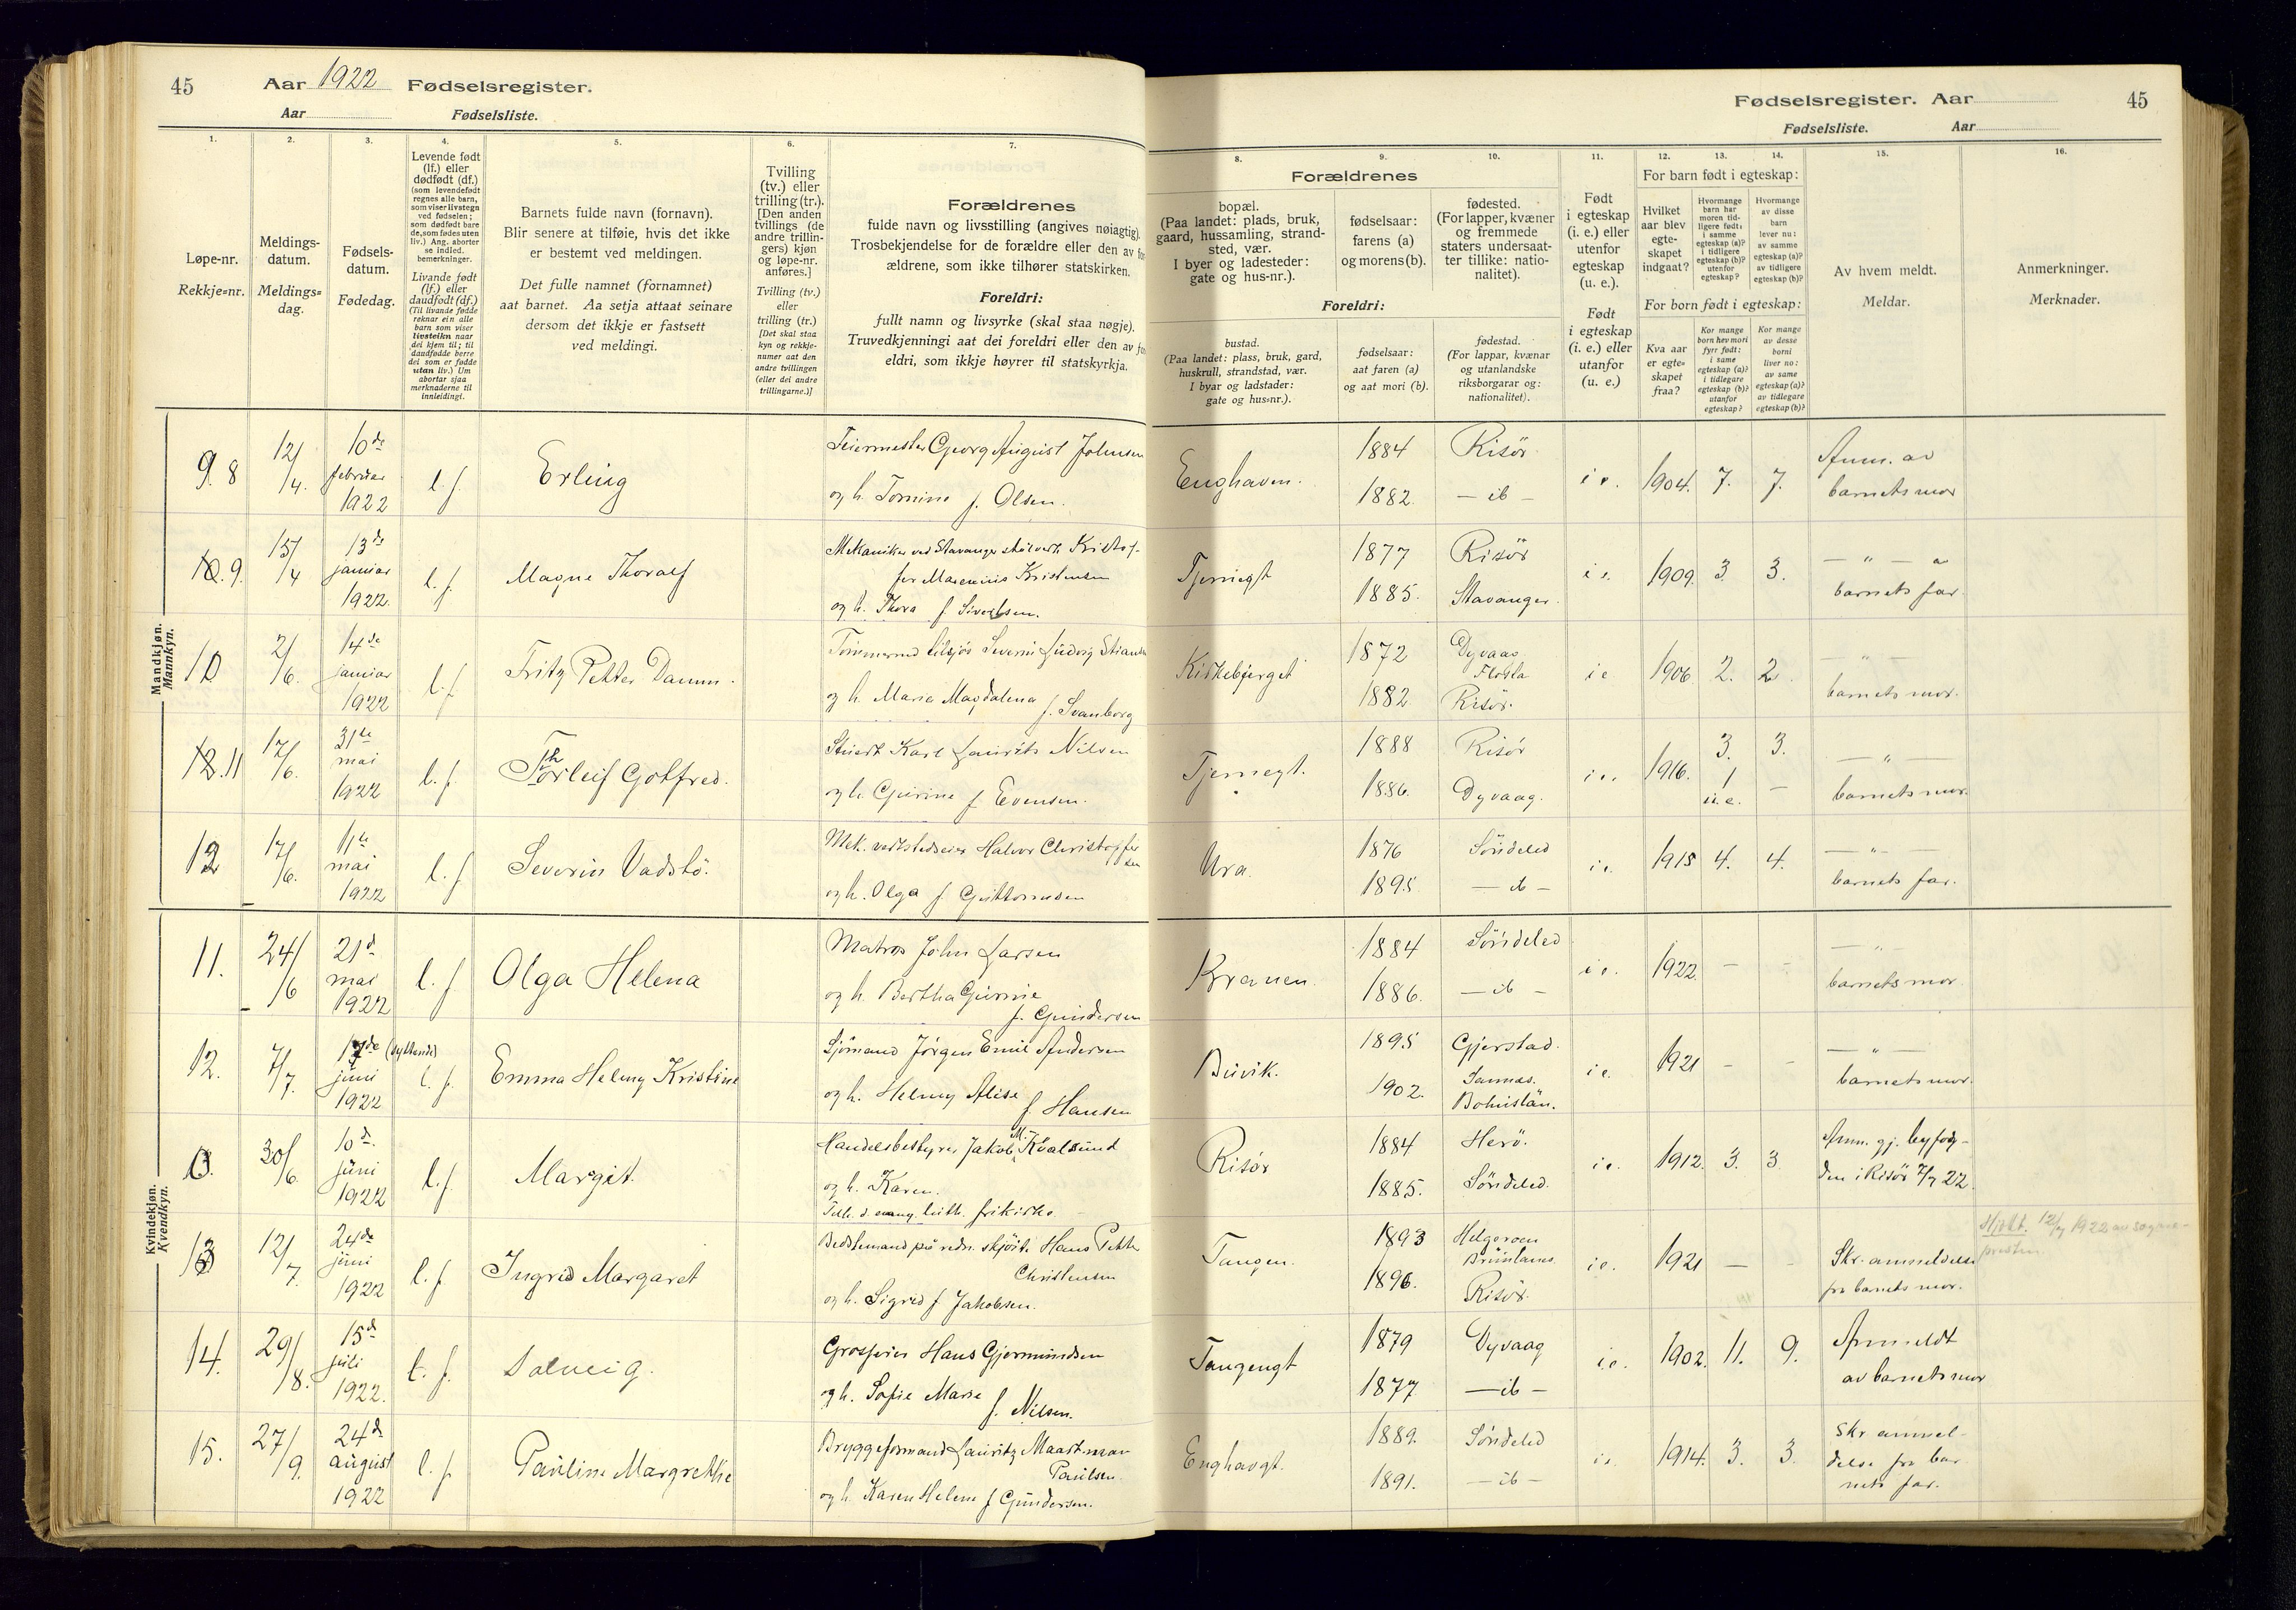 45
Aar 1922 Fødselsregister.
Aar Fødselsliste.
1.
2.
3.
4.
5.
6.
7.
Løpe-nr.
Rekkje=nr.
Meldings-
datum.
Meldings=
dag.
Fødsels-
datum.
Fødedag.
Levende født
(lf.) eller
dødfødt (df.)
(som levendefødt
regnes alle barn,
som viser livstegn
ved fødselen;
som dødfødt bare
de, som fødes uten
liv.) Ang. aborter
se indled.
bemerkninger.
Livande født
(lf.) eller
daudfødt (df.)
(Til livande fødde
reknar ein alle
barn som viser
livsteikn naar
dei kjem til; til
daudfødde berre
dei som er fødde
utan liv.) Um
abortar sjaa
merknaderne til
innleidingi.
Barnets fulde navn (fornavn).
Blir senere at tilføie, hvis det ikke
er bestemt ved meldingen.
Det fulle namnet (fornamnet)
aat barnet. Aa setja attaat seinare
dersom det ikkje er fastsett
ved meldingi.
Tvilling
(tv.) eller
trilling (tr.).
[Den anden
tvillings (de
andre trillin-
gers) kjøn
og løpe-nr.
anføres.]
Tvilling (tv.)
eller
trilling (tr.)
[Det skal staa
kyn og rekkje-
numer aat den
andre tvillingen
(eller dei andre
trillingarne.)]
Forældrenes
fulde navn og livsstilling (angives nøiagtig).
Trosbekjendelse for de forældre eller den av for
ældrene, som ikke tilhører statskirken.
Foreldri:
fullt namn og livsyrke (skal staa nøgje).
Truvedkjenningi aat dei foreldri eller den av for
eldri, som ikkje høyrer til statskyrkja.
Mandkjøn.
Mannkyn.
9. 8
12/4.
10de
februar
1922
l. f.
Erling
Feiermester Georg August Johnsen
og h. Tomine f. Olsen.
10. 9.
15/4
13de
januar
1922.
l. f.
Magne Thoralf
Mekaniker ved Stavanger Kristof-
fer Marenius Kristensen
og h. Thora f. Sivertsen.
10
2/6.
14de
januar
1922
l. f.
Fritz Petter Damm.
Severin Ludvig
og h. Maria Magdalena f. Svanborg
12. 11
17/6.
31te
mai
1922
l. f.
Thorleif Gotfred.
Stuert Karl Laurits Nilsen
og h. Gurine f. Evensen.
12
17/6.
11te
mai
1922
l. f.
Severin Vadstö.
Mek. verkstedseier Halvor Christoffer
sen
og h. Olga f. Guttormsen
Kvindekjøn.
Kvendkyn.
11.
24/6
21d.
mai
1922
l. f.
Olga Helena
Matros John Larsen
og h. Bertha Gurine
f. Gundersen
12.
7/7.
17de (syttende)
juni
1922
l. f.
Emma Helmy Kristine
Sjömand Jörgen Emil Andersen
og h. Helmy Alise
f. Hansen
30/6
10d.
juni
1922
l. f.
Margit.
Handelsbestyrer Jakob M. Kvalsund
og h. Karen.
Tilh. d. evang. luth. frikirke
13
12/7.
24de
juni
1922
l. f.
Ingrid Margaret
Bedstemand på redn. skjöite Hans Petter
Christensen
og h. Sigrid f. Jakobsen.
14.
29/8.
15d
juli
1922.
l. f.
Solveig.
Grosserer Hans Gjermundsen
og h. Sofie Marie f. Nilsen.
15.
27/9.
24d
august
1922
l. f.
Pauline Margrethe
Bryggeformand Lauritz Maartman
Paulsen.
og h. Karen Helene f. Gundersen.
Fødselsregister. Aar 45
Fødselsliste. Aar
8.
9.
10.
11.
12.
13.
14.
15.
16.
Forældrenes
bopæl.
(Paa landet: plads, bruk,
gaard, hussamling, strand-
sted, vær.
I byer og ladesteder:
gate og hus-nr.).
fødselsaar:
farens (a)
og morens (b).
fødested.
(For lapper, kvæner
og fremmede
staters undersaat-
ter tillike: natio-
nalitet).
Foreldri:
bustad.
(Paa landet: plass, bruk, gard,
huskrull, strandstad, vær.
I byar og ladstader:
gate og hus=nr.).
fødselsaar:
aat faren (a)
og aat mori (b).
fødestad.
(For lappar, kvænar
og utanlandske
riksborgarar og:
nationalitet).
Født
i egteskap
(i. e.) eller
utenfor
egteskap
(u. e.).
Født
i egteskap
(i. e.) eller
utanfor
(u. e.)
For barn født i egteskap:
Hvilket
aar blev
egte-
skapet
indgaat?
Hvormange
barn har
moren tid-
ligere født:
i samme
egteskap (a)?
i tidligere
egteskap (b)?
utenfor
egteskap?
Hvormange
av disse
barn
lever nu:
av samme
egteskap (a)?
av tidligere
egteskap (b)?
For born født i egteskap:
Kva aar
er egte=
skapet
fraa?
Kor mange
born hev mori
fyrr født:
i same
egteskap (a)?
i tidlegare
egteskap (b)?
utanfor
egteskap?
Kor mange
av desse
borni
liver no:
av same
egteskap (a)?
av tidlegare
egteskap (b)?
Av hvem meldt.
Meldar.
Anmerkninger.
Merknader.
Enghaven.
1884
1882.
Risör
— ib —
i e.
1904.
7.
7.
Anm. av
barnets mor
Tjernegt
1877
1885.
Risör
Stavanger.
i e.
1909.
3.
3.
— " —
barnets far.
Kirkebjerget
1872
1882
Dyvaag
Risör.
i e
1906
2.
2.
— " —
barnets mor.
Tjernegt.
1888
1886.
Risör
Dyvaag.
i e.
1916.
3.
1
u. e.
3.
—
— " —
barnets mor.
Ura.
1876
1895
Söndeled
— ib —
i e.
1915
4.
4.
— " —
barnets far.
Kranen.
1884
1886.
Söndeled
— ib —
i e.
1922.
—
—
— " —
barnets mor.
Buvik.
1895
1902.
Gjerstad.
Bohuslän.
i e.
1921
—
—
— " —
barnets mor.
Risör
1884
1885.
Herö.
Söndeled.
i e.
1912.
3.
3
Anm. gj. byfog-
den i Risör 7/7 22.
Tangen.
1893
1896.
Helgeroen
Brunlanes.
Risör.
i e.
1921
—
—
Skr. anmeldelse
fra barnets mor.
12/7 1922 av sogne-
presten.
Tangengt
1879
1877
Dyvaag
— ib —
i. e.
1902.
11.
9.
Anmeldt
av barnets mor
Enghavgt.
1889.
1891.
Söndeled
— ib —
i e.
1914.
3.
3.
Skr. anmel-
delse fra bar
nets far.